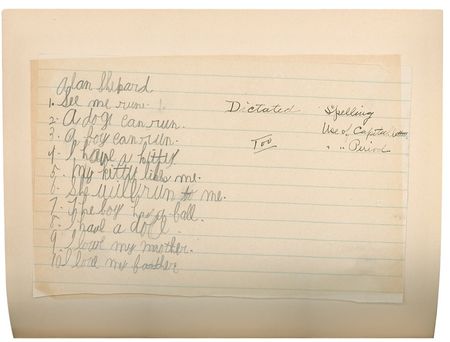 Alan Shepard
1. See me run.
2. A dog can run.
3. A boy can run.
4. I have a kitty
5. My kitty likes me.
6. She will run to me.
7. The boy has a ball.
8. I have a doll.
9. I love my mother.
10. I love my
Dictated
Too
Spelling
Use of Capital letters
" " Period